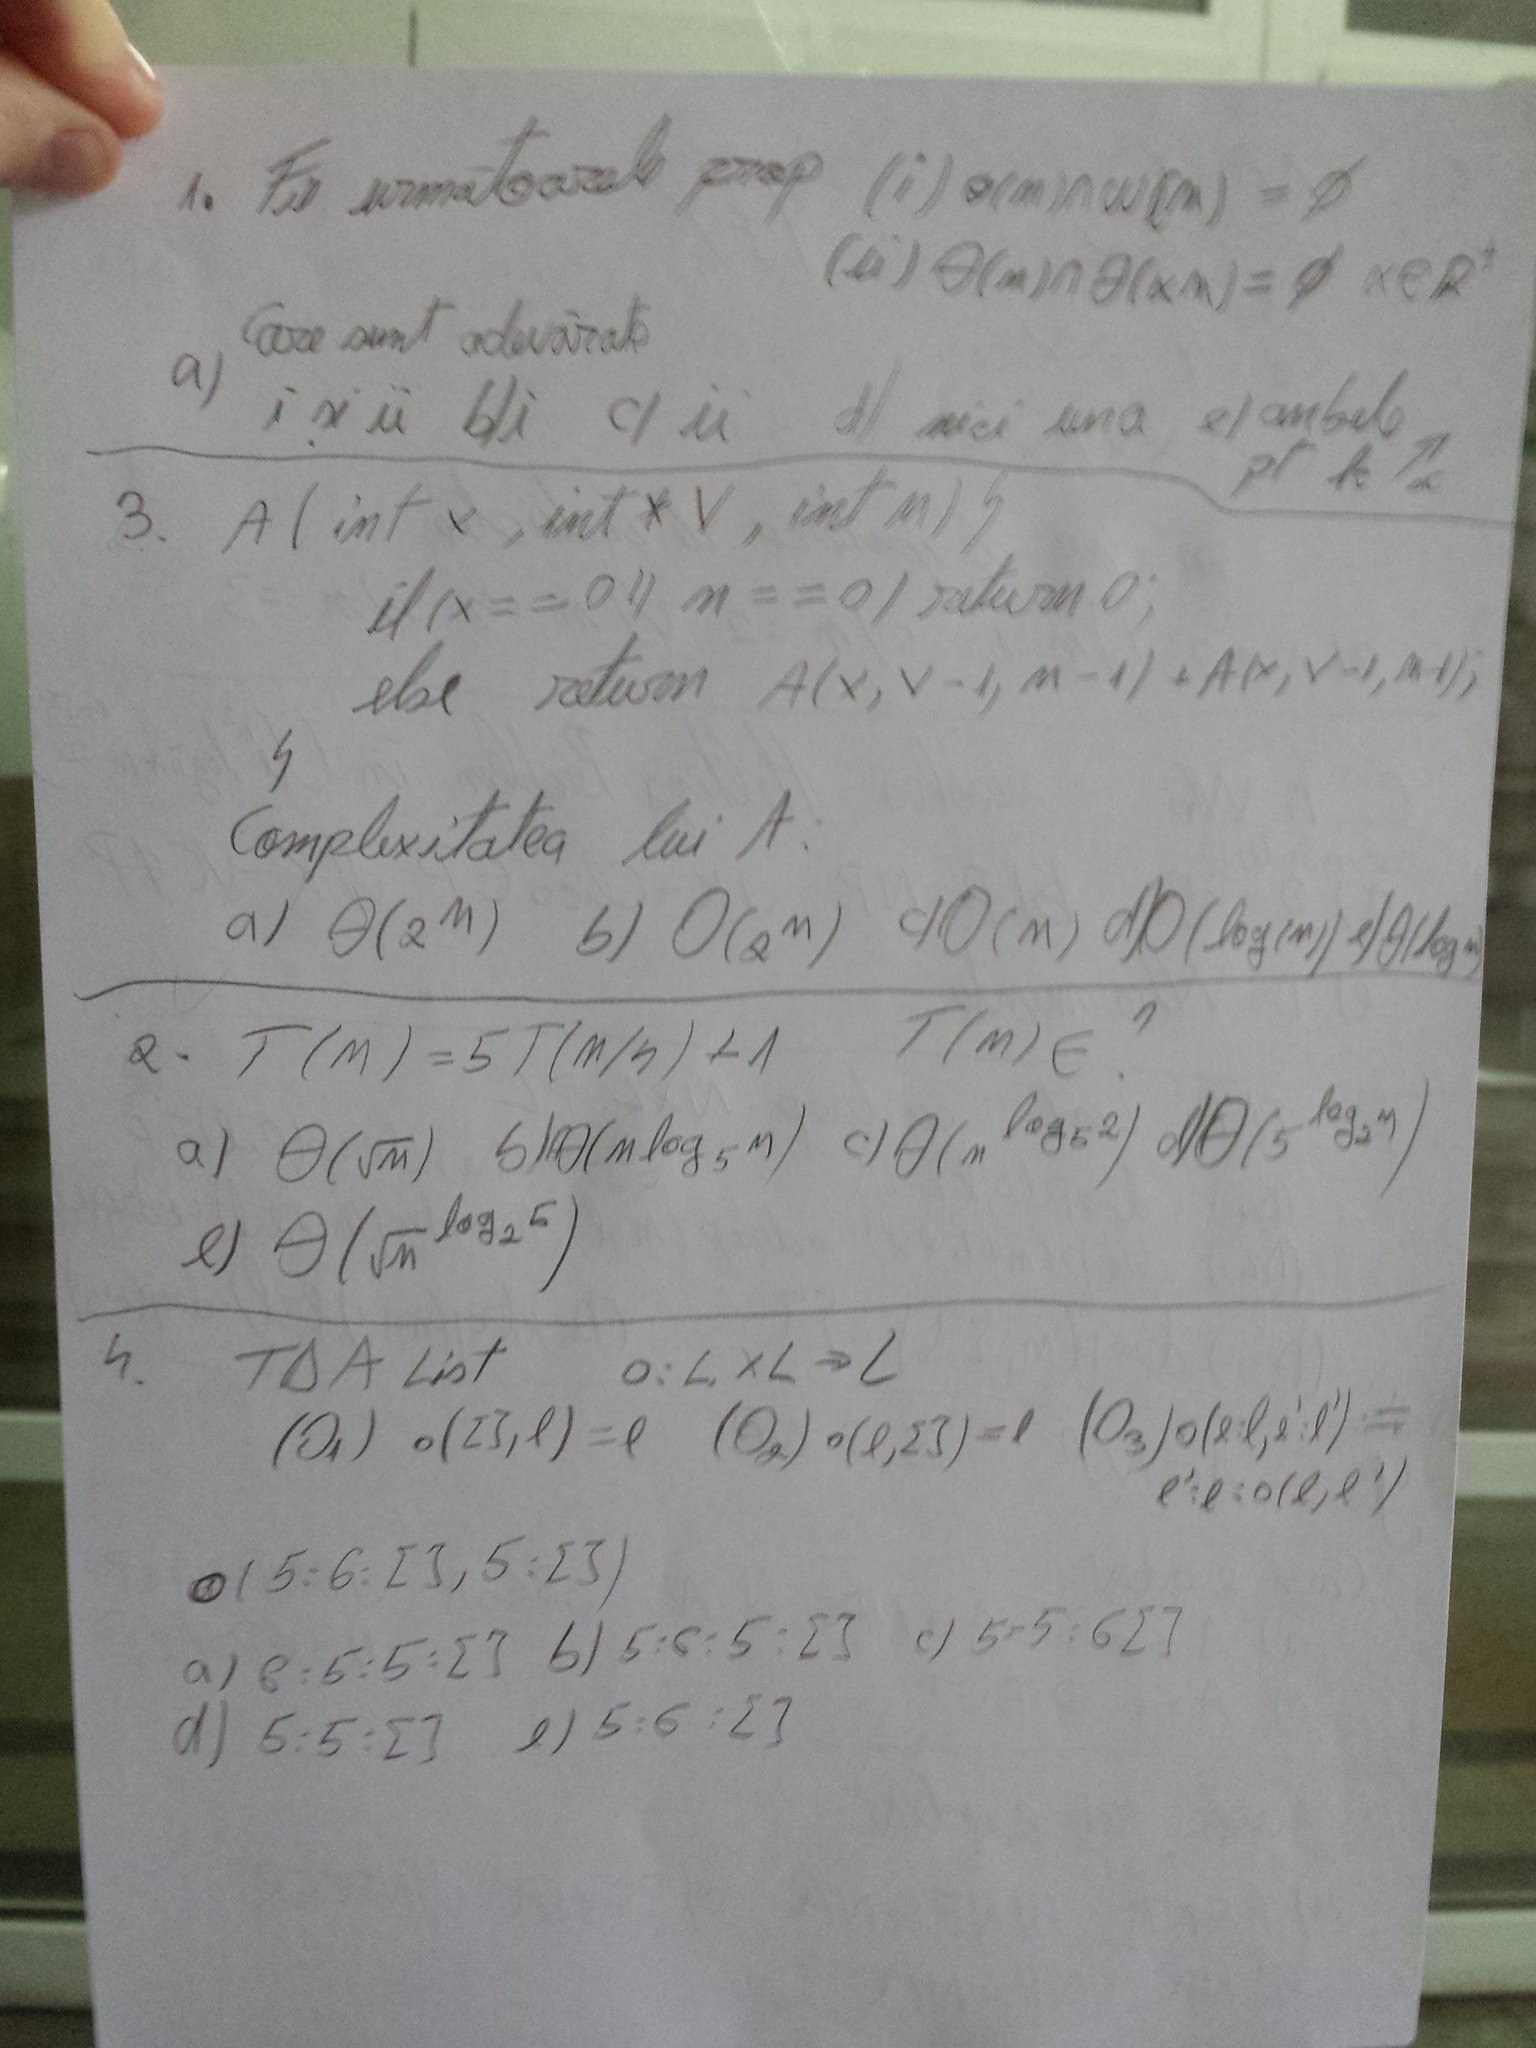 1. Fie următoarele prop (i) o(n)∩ω(n) = ∅
(ii) Θ(n)∩Θ(xn) = ∅ x∈R⁺
Care sunt adevărate
a) i și ii b) i c) ii d) nici una e) ambele
pt
3. A(int x, int *V, int n) {
if(x==0 || n==0) return 0;
else return A(x, V-1, n-1) + A(x, V-1, n-1);
}
Complexitatea lui A:
a) Θ(2^n) b) O(2^n) c) O(n) d) O(log(n)) e) Θ(log n)
2. T(n) = 5T(n/4) + 1 T(n) ∈ ?
a) Θ(√n) b) Θ(n log₅ n) c) Θ(n^(log₅ 2)) d) Θ(5^(log₂ n))
e) Θ(√n^(log₂ 5))
4. TDA List o: L × L → L
(O₁) o([], l) = l (O₂) o(l, []) = l (O₃) o(e:l, e':l') =
e':e:o(l, l')
o(5:6:[], 5:[])
a) 6:5:5:[] b) 5:6:5:[] c) 5:5:6[]
d) 5:5:[] e) 5:6:[]